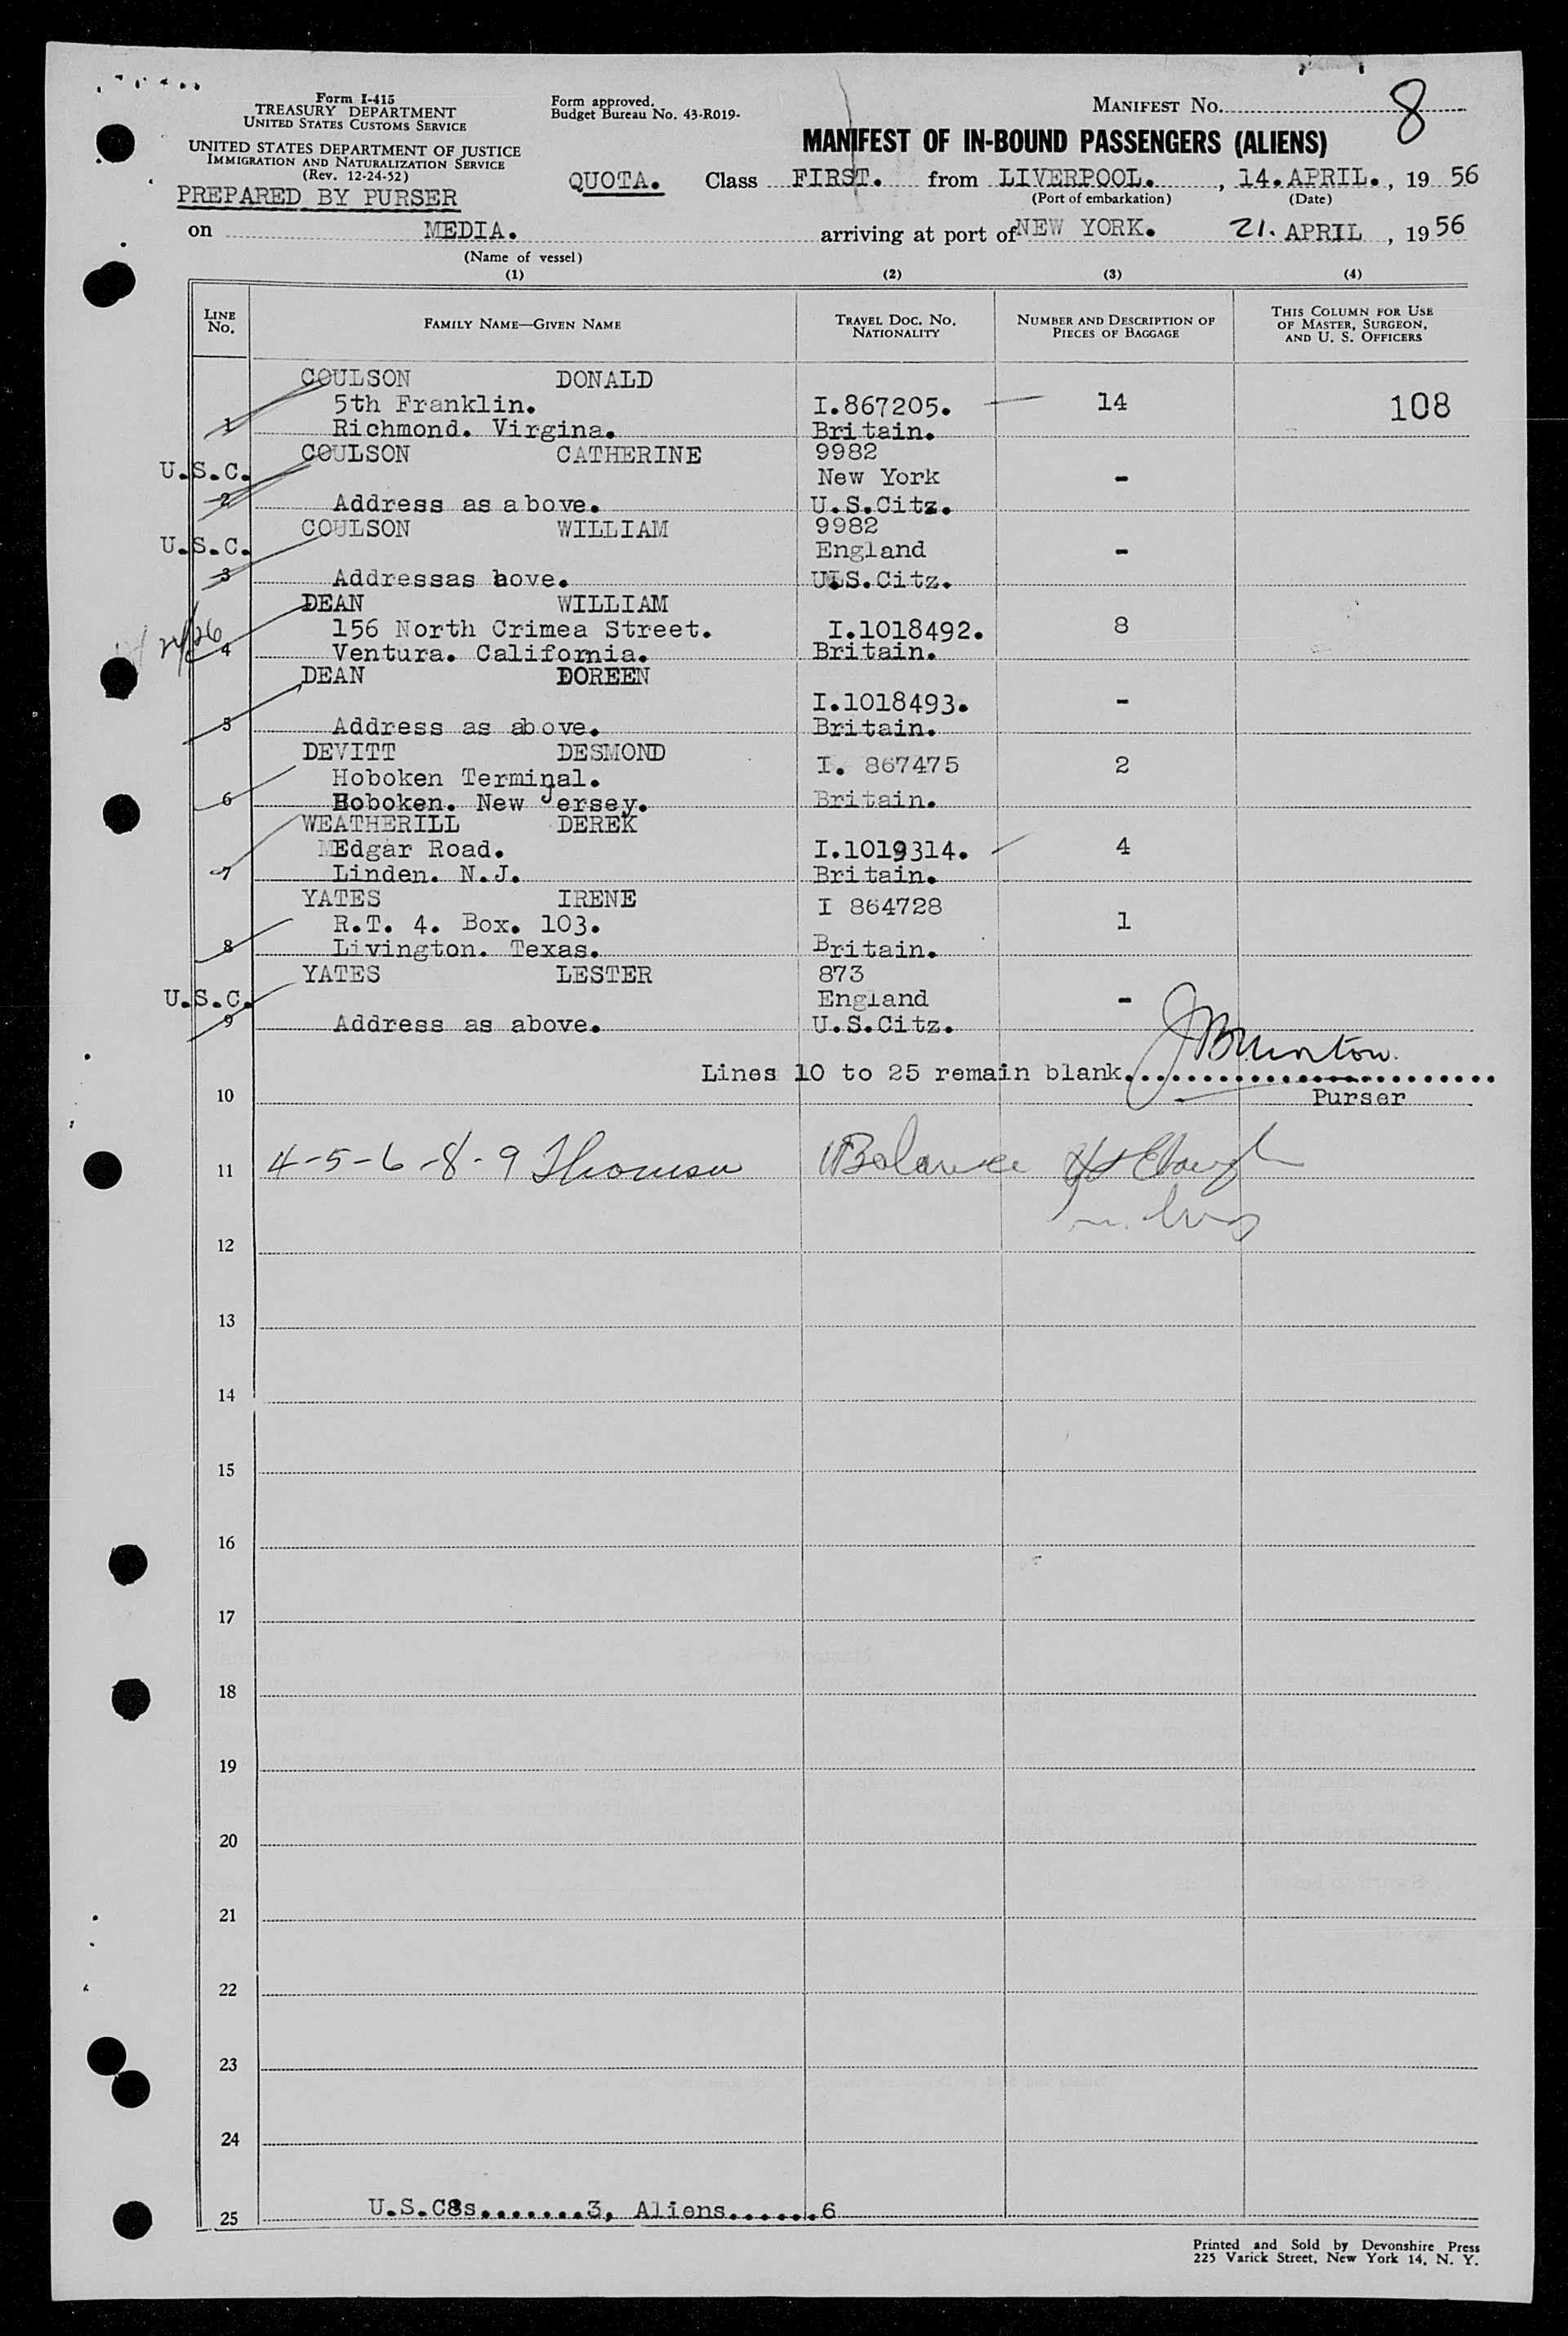 Form I-415
TREASURY DEPARTMENT
UNITED STATES CUSTOMS SERVICE
UNITED STATES DEPARTMENT OF JUSTICE
IMMIGRATION AND NATURALIZATION SERVICE
(Rev. 12-24-52)
PREPARED BY PURSER
Form approved.
Budget Bureau No. 43-R019-
MANIFEST No. 8
MANIFEST OF IN-BOUND PASSENGERS (ALIENS)
QUOTA. Class FIRST. from LIVERPOOL. , 14.APRIL. , 19 56
(Port of embarkation) (Date)
on MEDIA. arriving at port of NEW YORK. 21. APRIL , 19 56
(Name of vessel)
(1) (2) (3) (4)
LINE No. FAMILY NAME—GIVEN NAME TRAVEL DOC. No. NATIONALITY NUMBER AND DESCRIPTION OF PIECES OF BAGGAGE THIS COLUMN FOR USE OF MASTER, SURGEON, AND U. S. OFFICERS
COULSON DONALD
5th Franklin. I.867205. 14 108
1 Richmond. Virgina. Britain.
COULSON CATHERINE 9982
U.S.C. New York -
2 Address as above. U.S.Citz.
COULSON WILLIAM 9982
U.S.C. England -
3 Addressas bove. U.S.Citz.
DEAN WILLIAM
156 North Crimea Street. I.1018492. 8
4 Ventura. California. Britain.
DEAN DOREEN
I.1018493. -
5 Address as above. Britain.
DEVITT DESMOND
Hoboken Terminal. I. 867475 2
6 Hoboken. New Jersey. Britain.
WEATHERILL DEREK
Edgar Road. I.1019314. 4
7 Linden. N.J. Britain.
YATES IRENE I 864728
R.T. 4. Box. 103. 1
8 Livington. Texas. Britain.
YATES LESTER 873
U.S.C. England -
9 Address as above. U.S.Citz.
Lines 10 to 25 remain blank.
10 Purser
11 4-5-6-8-9 Thomson Balance
12
13
14
15
16
17
18
19
20
21
22
23
24
25 U.S.C8s.......3, Aliens......6
Printed and Sold by Devonshire Press
225 Varick Street, New York 14, N. Y.